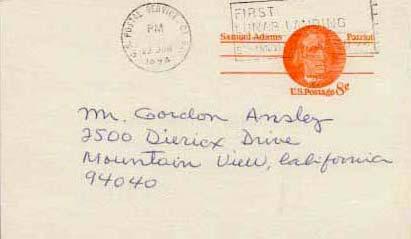 U.S. POSTAL SERVICE CA
PM
1974
FIRST
LUNAR LANDING
Samuel Adams Patriot
U.S. Postage 8¢
Mr. Gordon Ansley
2500 Diericx Drive
Mountain View, California
94040